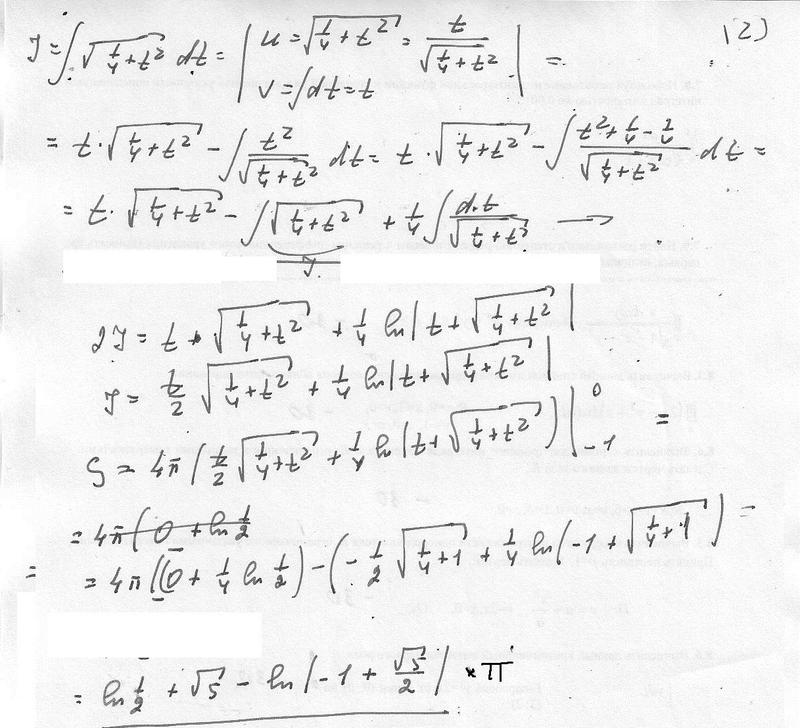 (2)
J = ∫ √(1/4 + t²) dt = | u = √(1/4 + t²) = t/√(1/4 + t²) | =
v = ∫dt = t
= t · √(1/4 + t²) − ∫ t²/√(1/4 + t²) dt = t · √(1/4 + t²) − ∫ (t² + 1/4 − 1/4)/√(1/4 + t²) dt =
= t · √(1/4 + t²) − ∫ √(1/4 + t²) + 1/4 ∫ dt/√(1/4 + t²) →
J
2J = t · √(1/4 + t²) + 1/4 ln | t + √(1/4 + t²) |
J = t/2 √(1/4 + t²) + 1/4 ln | t + √(1/4 + t²) |
S = 4π ( t/2 √(1/4 + t²) + 1/4 ln | t + √(1/4 + t²) ) |⁰₋₁ =
= 4π ( 0 + ln 1/2
= = 4π ((0 + 1/4 ln 1/2) − (−1/2 √(1/4 + 1) + 1/4 ln (−1 + √(1/4 + 1) ) =
= ln 1/2 + √5 − ln | −1 + √5/2 | × π